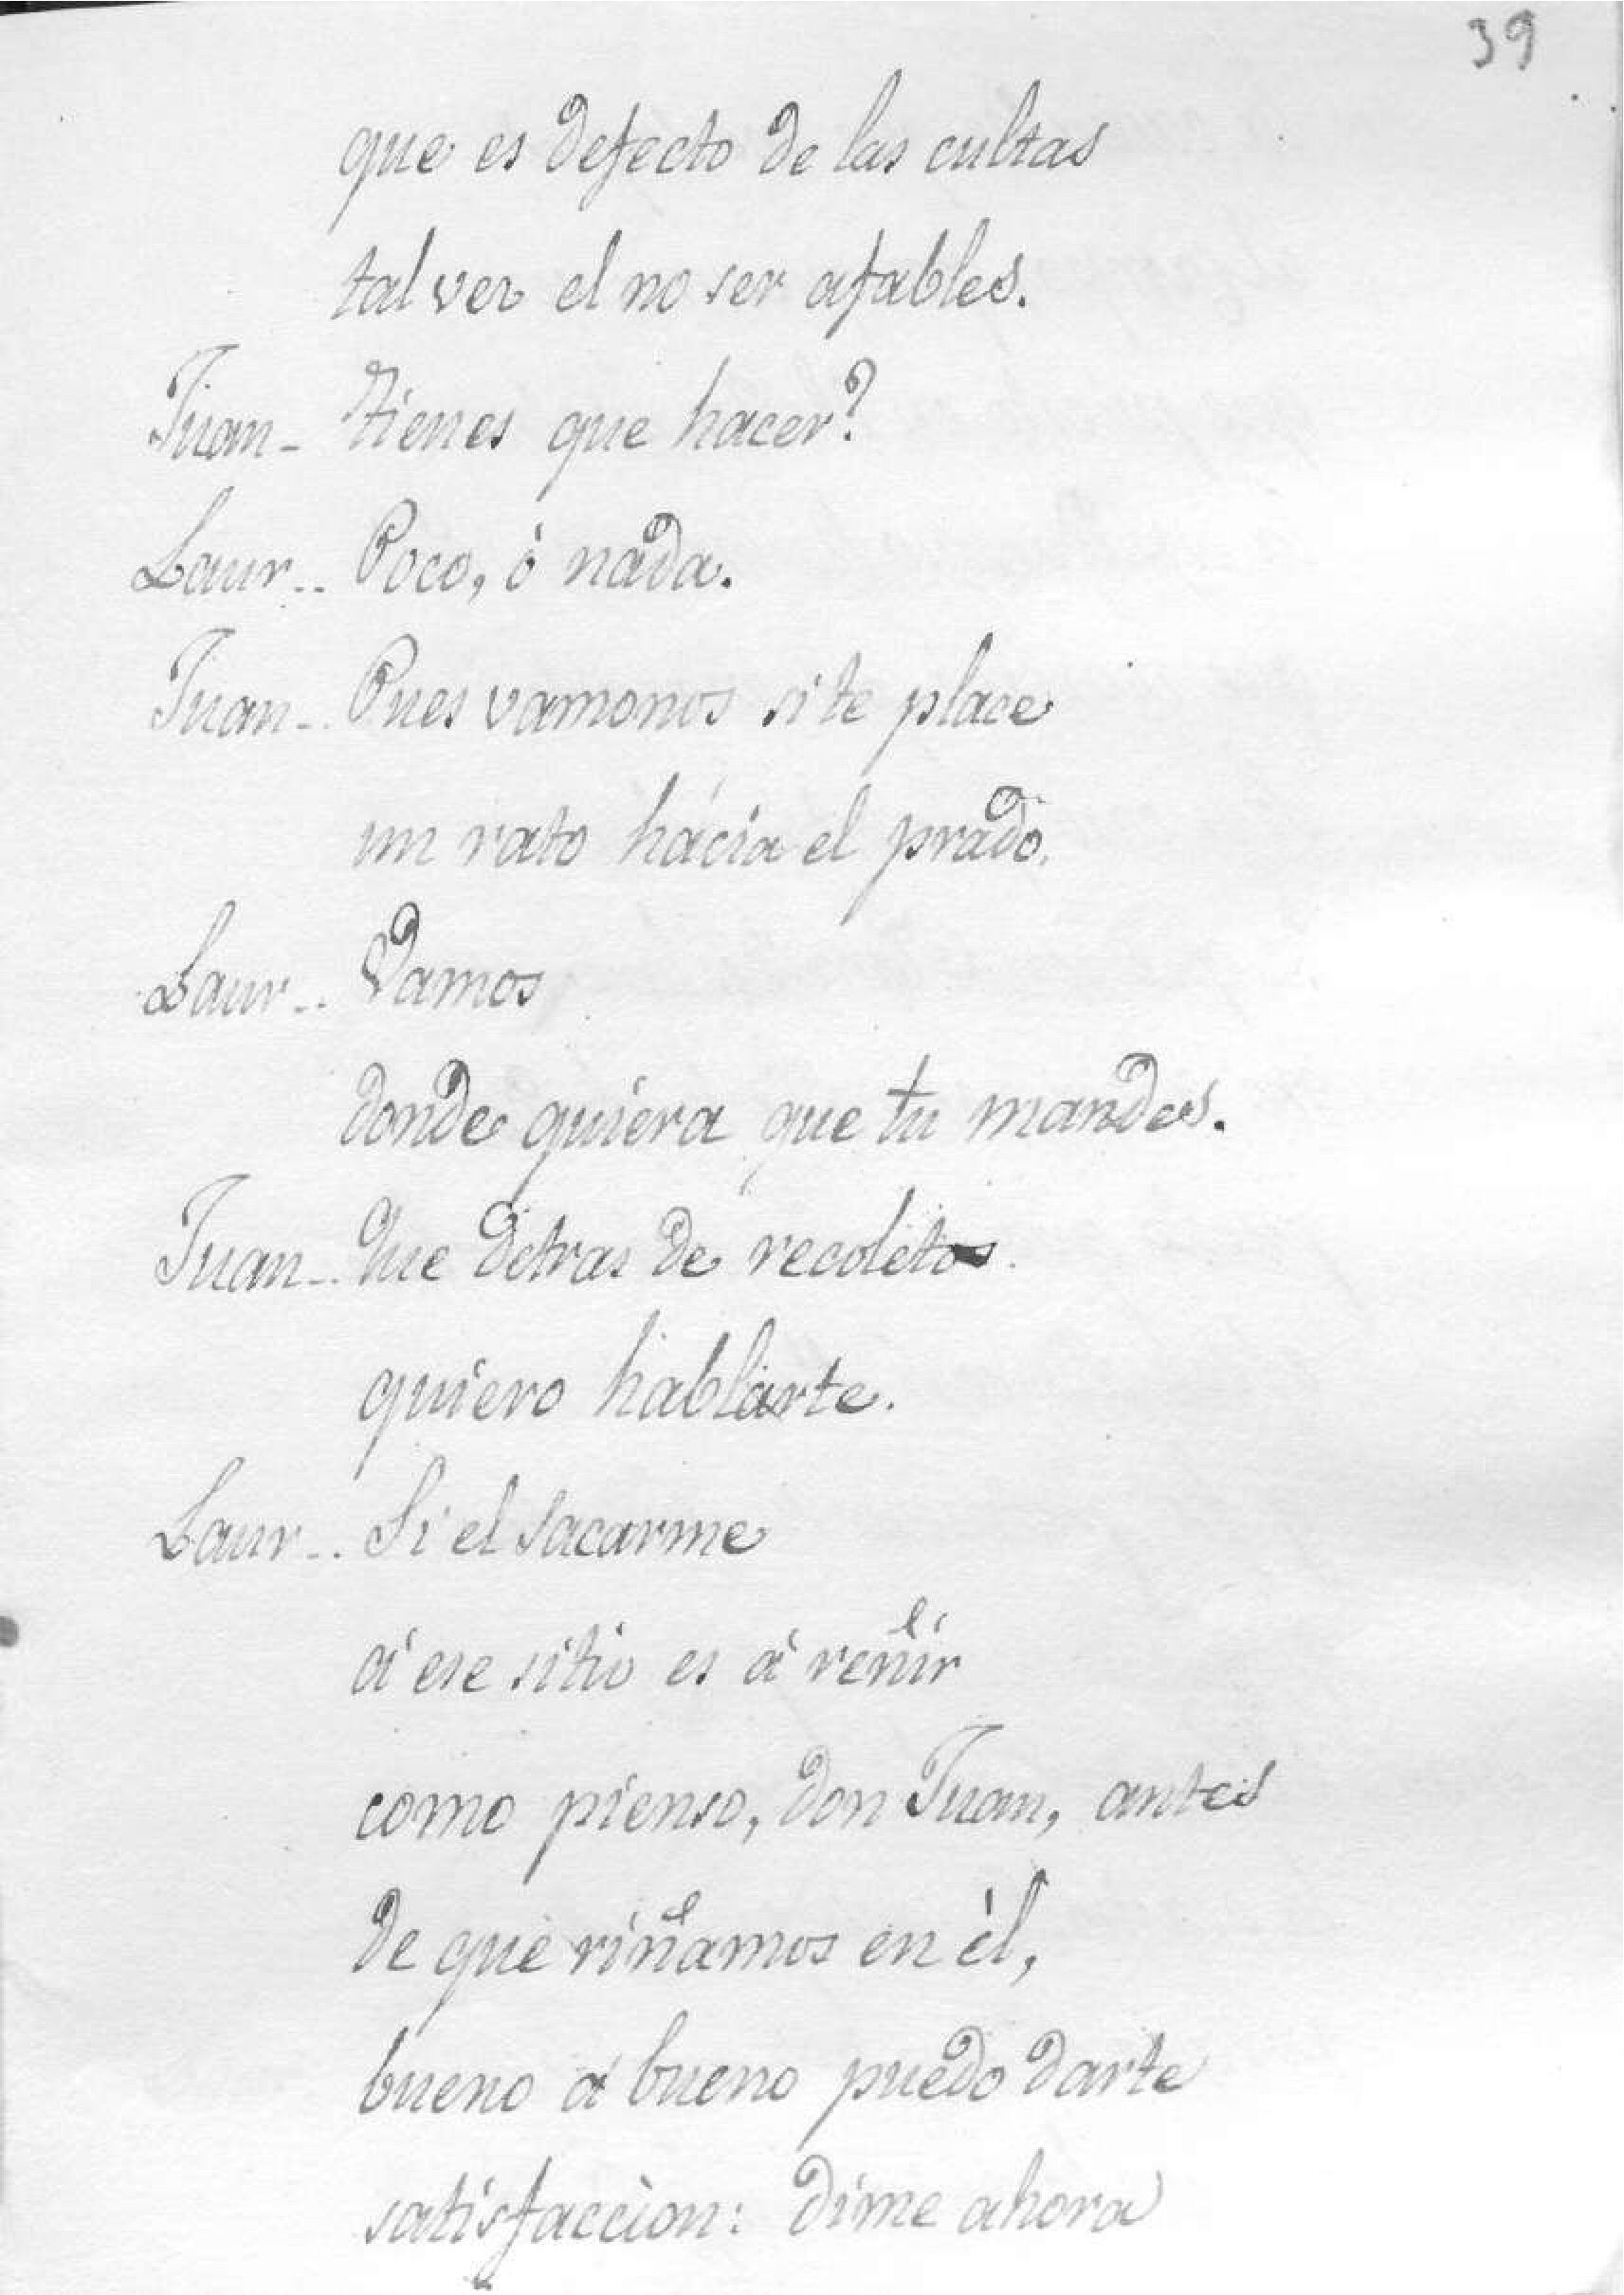 39
que es defecto de las cultas
tal vez el no ser afables.
Juan - Tienes que hacer?
Laur.. Poco, ó nada.
Juan.. Pues vamonos si te place
un rato hácia el prado.
Laur.. Vamos
donde quiera que tu mandes.
Juan.. Que detras de recoletos
quiero hablarte.
Laur.. Si el sacarme
á ese sitio es á reñir
como pienso, don Juan, antes
de que riñamos en él,
bueno á bueno puedo darte
satisfaccion: dime ahora